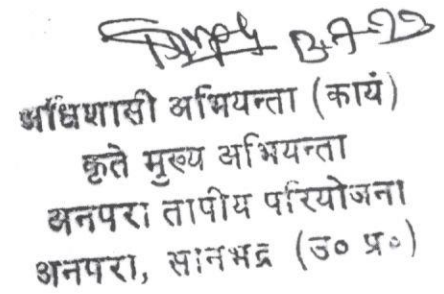 13-7-99
अधिशासी अभियन्ता (कायं)
कृते मुख्य अभियन्ता
अनपरा तापीय परियोजना
अनपरा, सानभद्र (उ० प्र०)